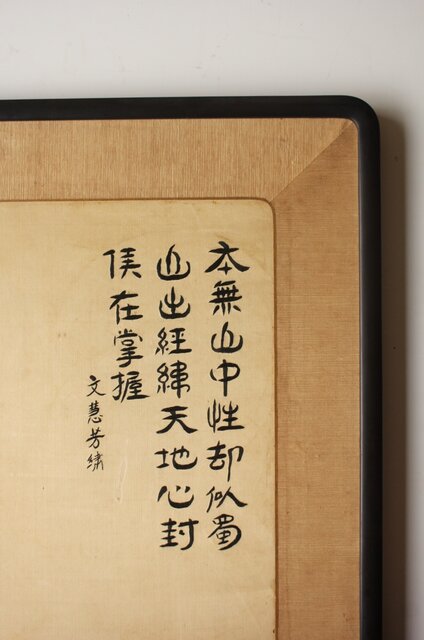 本無山中性却似蜀
山出經緯天地心封
侯在掌握
文慧芳繡